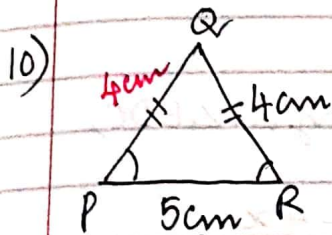 10)
Q
4cm
4cm
P
5cm
R